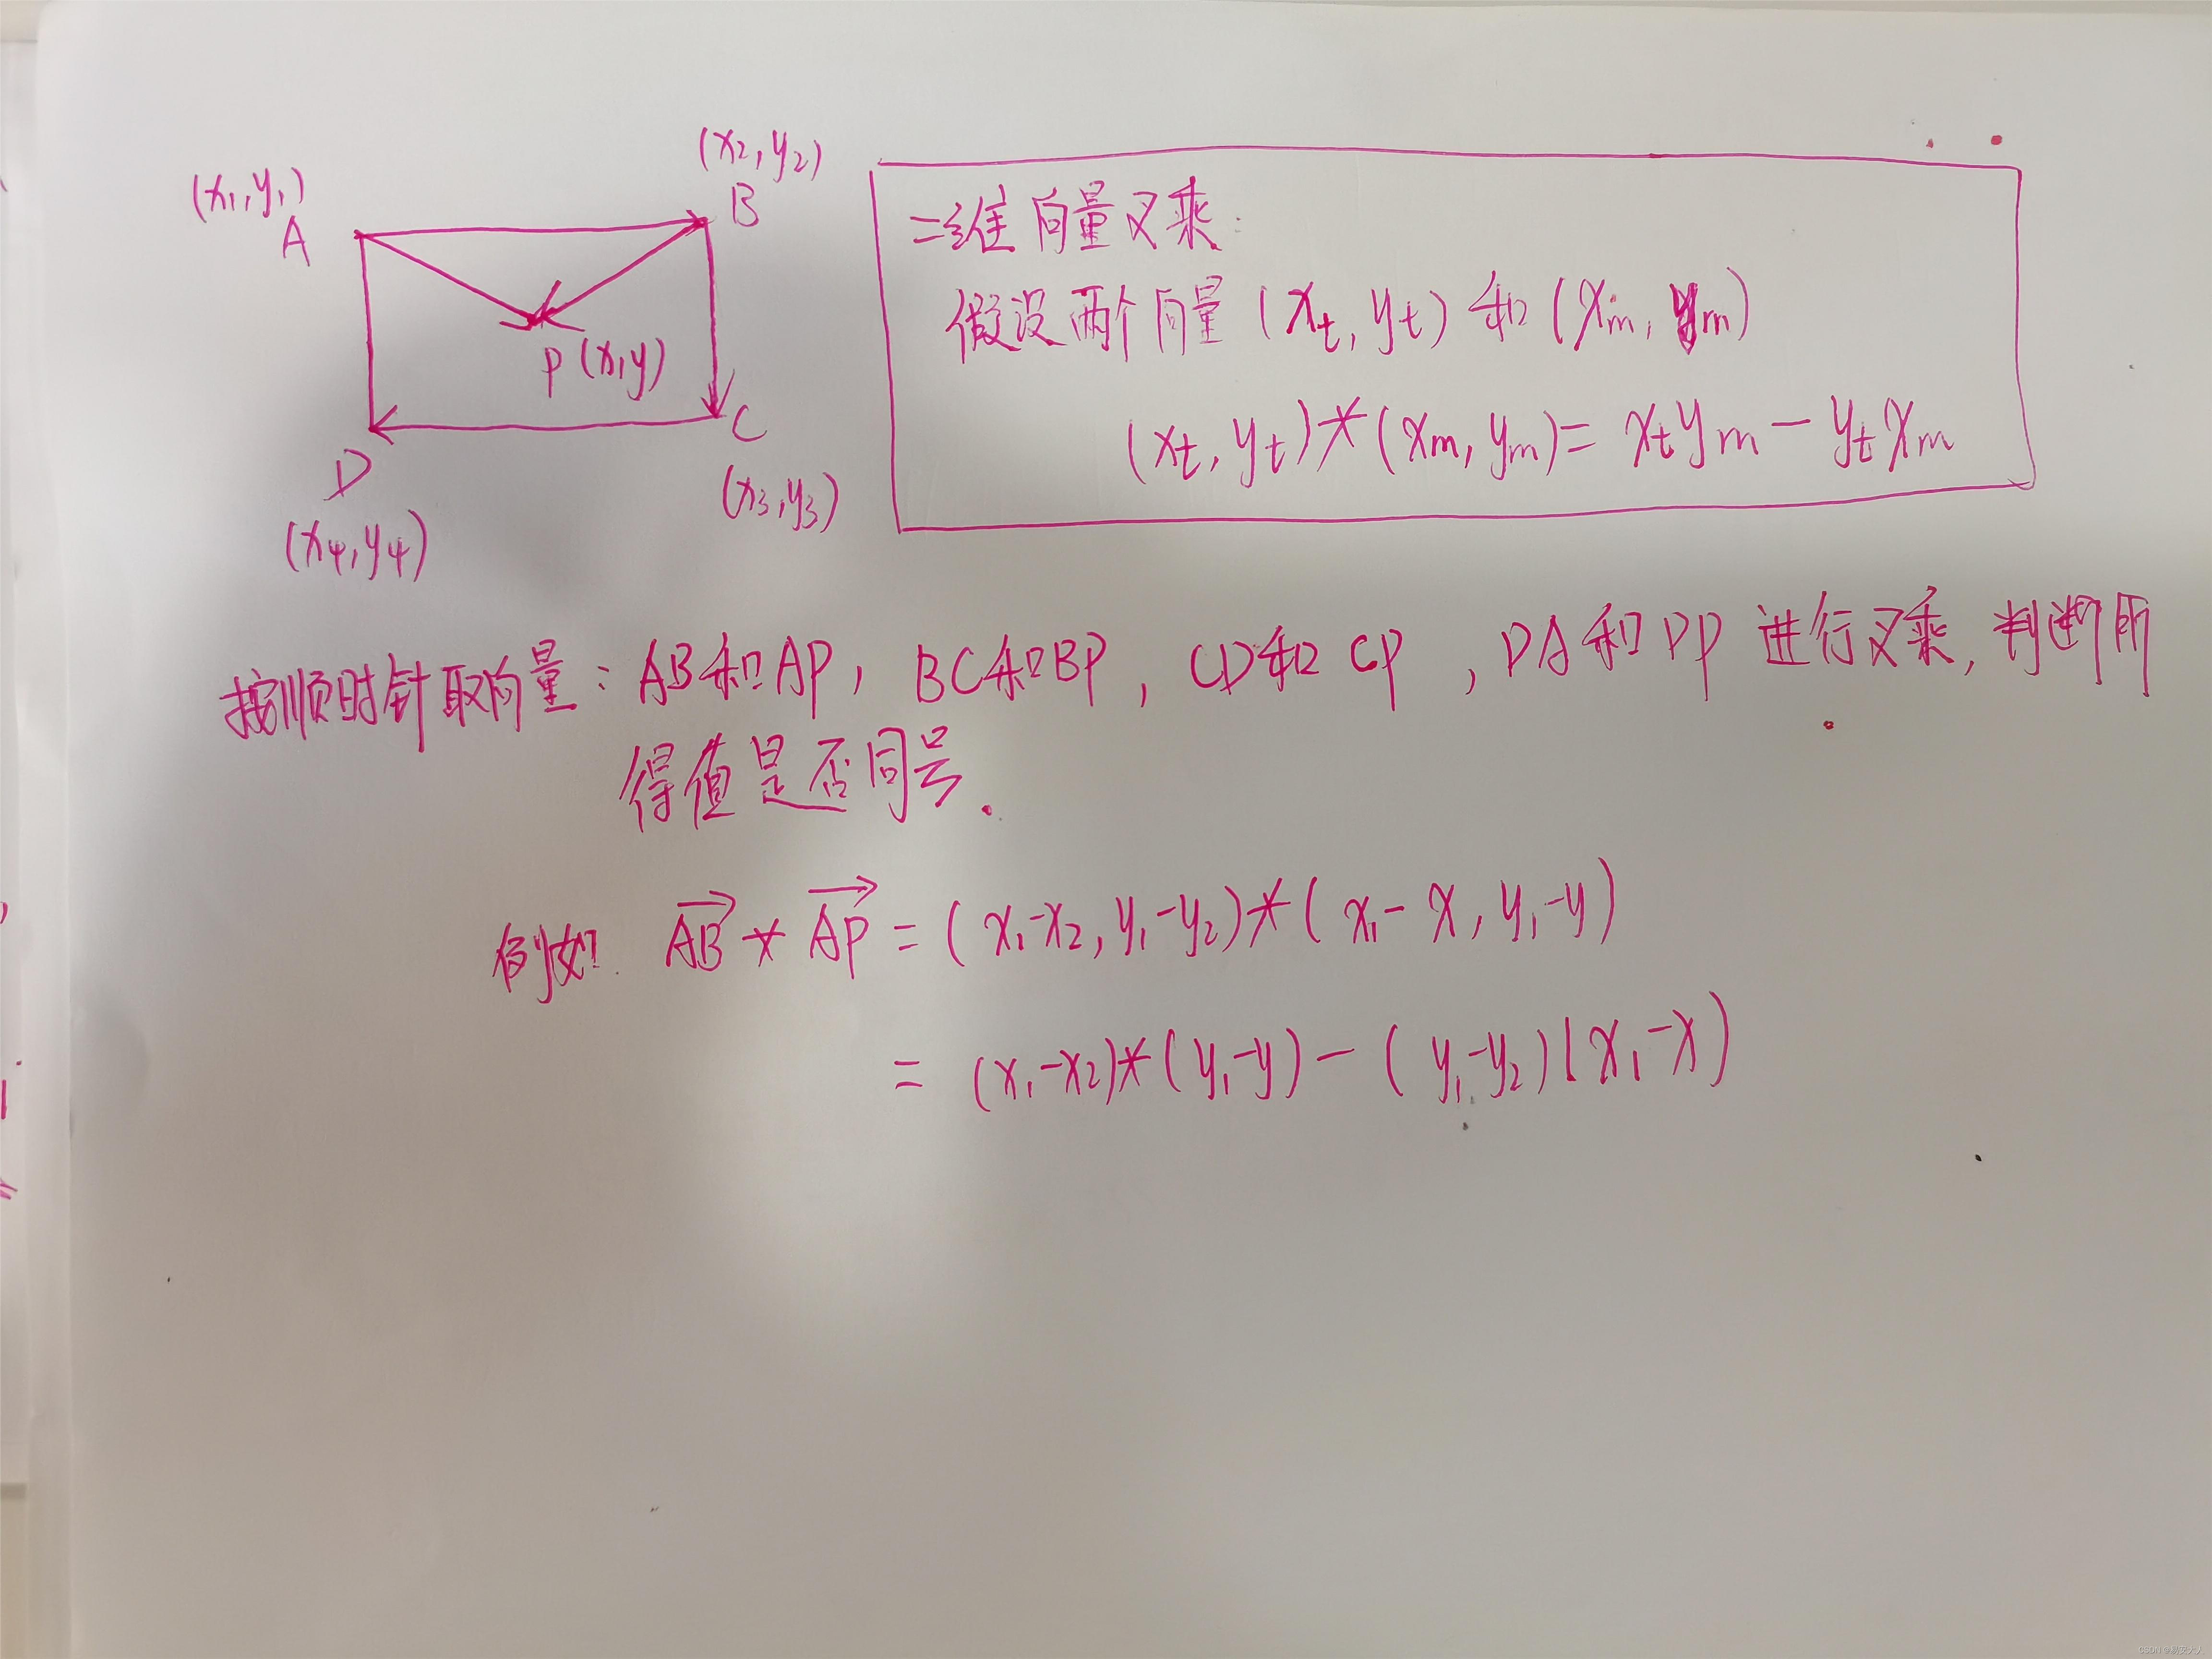 (x₁,y₁)
A
(x₂,y₂)
B
P(x,y)
C
(x₃,y₃)
D
(x₄,y₄)
二维向量叉乘:
假设两个向量(xₜ,yₜ)和(xₘ,yₘ)
(xₜ,yₜ)*(xₘ,yₘ)=xₜyₘ-yₜxₘ
按顺时针取向量:AB和AP,BC和BP,CD和CP,DA和DP进行叉乘,判断所
得值是否同号.
例如: AB * AP = (x₁-x₂,y₁-y₂)*(x₁-x,y₁-y)
= (x₁-x₂)*(y₁-y)-(y₁-y₂)(x₁-x)
CSDN @易安大人